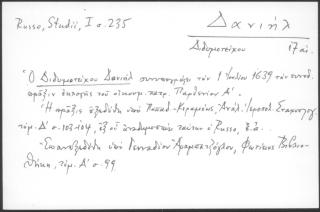 Russo, Studii, I σ. 235
Δανιήλ
Διδυμοτείχου 17 αἰ.
Ὁ Διδυμοτείχου Δανιὴλ συνυπογράφει τὴν 1 Ἰουλίου 1639 τὴν συνοδ.
πρᾶξιν ἐκλογῆς τοῦ οἰκουμ. πατρ. Παρθενίου Α΄.
Ἡ πρᾶξις ἐξεδόθη ὑπὸ Παπαδ.-Κεραμέως, Ἀνάλ. Ἱεροσολ. Σταχυολογ.
τόμ. Δ΄ σ. 103-104, ἐξ οὗ ἀναδημοσιεύει ταύτην ὁ Russo, ἔ.ἀ.
Ἐπανεξεδόθη ὑπὸ Γενναδίου Ἀραμπατζόγλου, Φωτίειος Βιβλιο-
θήκη, τόμ. Α΄ σ. 99